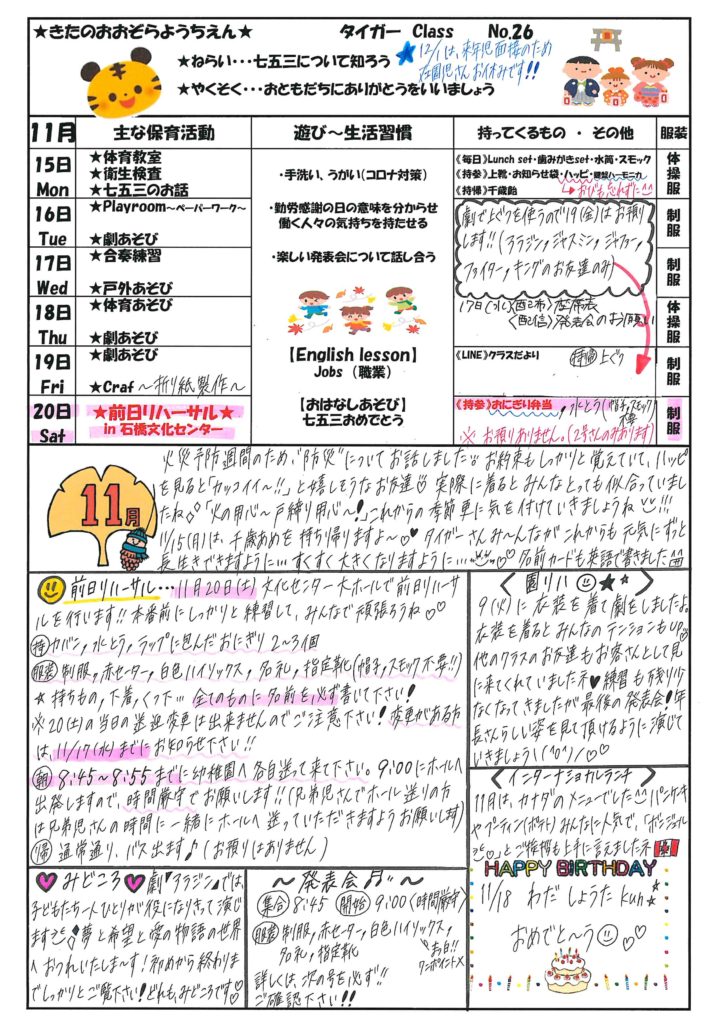 ★きたのおおぞらようちえん★
タイガー Class No.26
★ねらい・・・七五三について知ろう
★やくそく・・・おともだちにありがとうをいいましょう
★12/1は、来年児面接のため
在園児さんお休みです!!
11月 主な保育活動 遊び～生活習慣 持ってくるもの ・ その他 服装
15日 Mon
★体育教室
★衛生検査
★七五三のお話
《毎日》Lunch set・歯みがきset・水筒・スモック
《持参》上靴・お知らせ袋・ハッピ・鍵盤ハーモニカ
《持帰》千歳飴 おびも忘れずに^^
体操服
16日 Tue
★Playroom～ペーパーワーク～
★劇あそび
制服
17日 Wed
★合奏練習
★戸外あそび
制服
18日 Thu
★体育あそび
★劇あそび
体操服
19日 Fri
★劇あそび
★Craf～折り紙製作～
制服
20日 Sat
★前日リハーサル★
in 石橋文化センター
制服
・手洗い、うがい(コロナ対策)
・勤労感謝の日の意味を分からせ
働く人々の気持ちを持たせる
・楽しい発表会について話し合う
【English lesson】
Jobs (職業)
【おはなしあそび】
七五三おめでとう
劇で上ぐつを使うので19(金)はお預り
します!!(アラジン,ジャスミン,ジャファー,
ファイター,キングのお友達のみ)
17日(水)〈配布〉座席表
〈配信〉発表会のお願い
《LINE》クラスだより 持帰 上ぐつ
《持参》おにぎり弁当,水とう(帽子,スモック)
※お預りありません。(2号さんのみあります)
11月
火災予防週間のため、"防災"についてお話しました お約束もしっかりと覚えていて、ハッピ
を見ると「カッコイイ～!!」と嬉しそうなお友達♡ 実際に着るとみんなとっても似合っていまし
たね◇「火の用心～戸締り用心～!」これからの季節、車に気を付けていきましょうね!!!
11/15(月)は、千歳あめを持ち帰りますよ～♡♥ タイガーさんみ～んながこれからも元気にずっと
長生きできますように… すくすく大きくなりますように…♥ 名前カードも英語で書きました^^
前日リハーサル・・・11月20日(土)文化センター大ホールで前日リハーサ
ルを行います!!本番前にしっかりと練習して、みんなで頑張ろうね♡♡
持 カバン,水とう,ラップに包んだおにぎり 2～3個
服装 制服,赤セーター,白色ハイソックス,名札,指定靴(帽子,スモック不要!!)
★持ちもの,下着,くつ下… 全てのものに名前を必ず書いて下さい!
※20(土)の当日の送迎変更は出来ませんのでご注意下さい! 変更がある方
は、11/17(水)までにお知らせ下さい!!
朝 8:45～8:55までに幼稚園へ各自送って来て下さい。9:00にホールへ
出発しますので、時間厳守でお願いします!!(兄弟児さんでホール送りの方
は兄弟児さんの時間に一緒にホールへ送っていただきますようお願いします)
帰 通常通り、バス出ます♪(お預りはありません)
〈園リハ ★★〉
9(火)に衣装を着て劇をしましたよ。
衣装を着るとみんなのテンションもUP
他のクラスのお友達もお客さんとして見
に来てくれていましたネ♥練習も残り少
なくなってきましたが最後の発表会!年
長さんらしい姿を見て頂けるように演じて
いきましょう!\(^0^)/♡♡
〈インターナショナルランチ〉
11月は、カナダのメニューでした^^パンケーキ
やプーティン(ポテト)みんなに人気で、「ボンジュール
♡」とご挨拶も上手に言えましたネ
HAPPY BIRTHDAY
11/18 わだ しょうた kun☆
おめでと～う♡♡
♥みどころ♥劇「アラジン」では、
子どもたち一人ひとりが役になりきって演じ
ます◇夢と希望と愛の物語の世界
へおつれいたしま～す!初めから終わりま
でしっかりとご覧下さい!どれも、みどころです♡
～発表会♬～
集合 8:45 開始 9:00〈時間厳守〉
服装 制服,赤セーター,白色ハイソックス,
名札,指定靴
お白!!
ワンポイント×
詳しくは、次の号を必ず!!
ご確認下さい!!